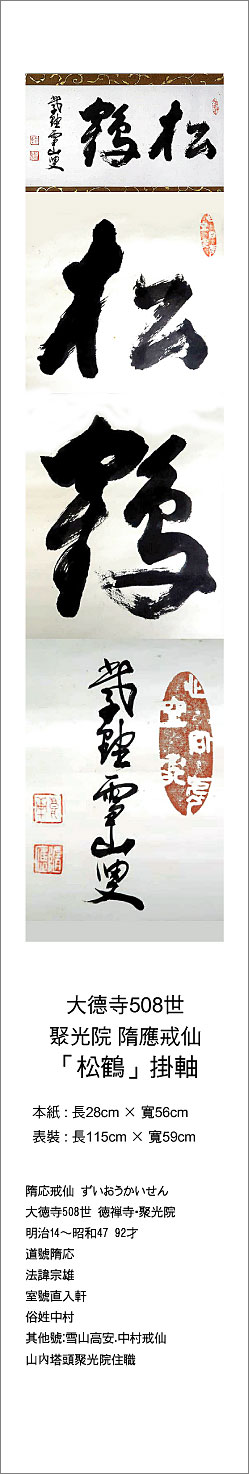 松鶴
松
鶴
大德寺508世
聚光院 隋應戒仙
「松鶴」掛軸
本紙：長28cm × 寬56cm
表裝：長115cm × 寬59cm
隋応戒仙 ずいおうかいせん
大徳寺508世 徳禅寺・聚光院
明治14～昭和47 92才
道號隋応
法諱宗雄
室號直入軒
俗姓中村
其他號:雪山高安.中村戒仙
山内塔頭聚光院住職